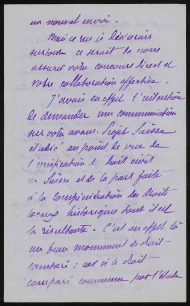 un nouvel envoi.
Mais ce que je désirerais
surtout ce serait de vous
assurer votre concours direct et
votre collaboration effective.
J'aurais en effet l'intention
de demander une communication
sur votre avant-projet Suisse
étudié au point de vue de
l'unification du droit civil
en Suisse et de la part faite
à la compénétration des droits
locaux historiques dont il est
la résultante. C'est en effet là
un beau monument de droit
comparé ; car si le droit
comparé commence par l'étude